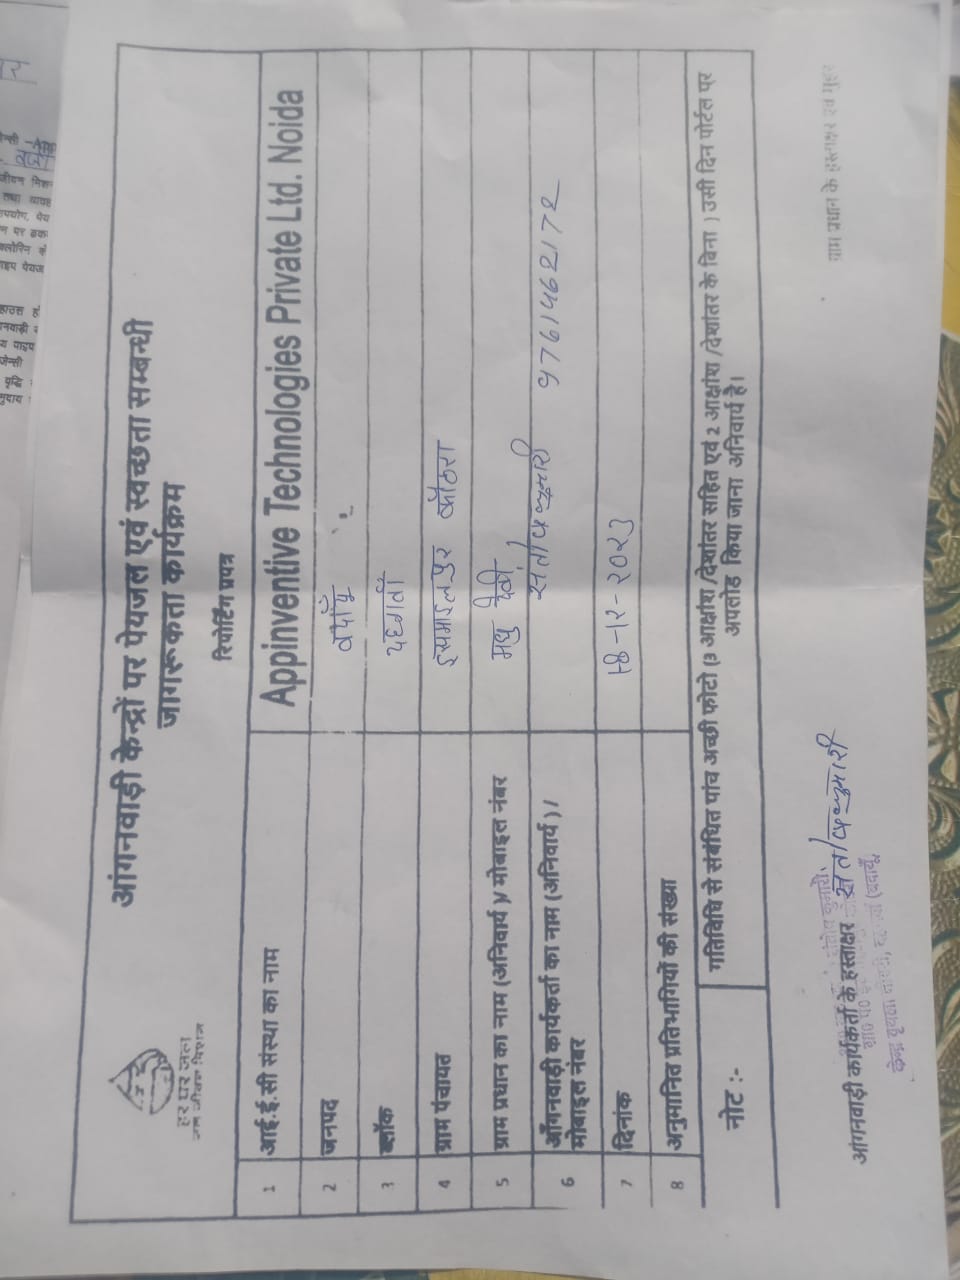 हर घर जल
जल जीवन मिशन
आंगनवाड़ी केन्द्रों पर पेयजल एवं स्वच्छता सम्बन्धी
जागरूकता कार्यक्रम
रिपोर्टिंग प्रपत्र
1 आई.ई.सी संस्था का नाम Appinventive Technologies Private Ltd. Noida
2 जनपद बदायूँ
3 ब्लॉक
4 ग्राम पंचायत इसमाइलपुर
5 ग्राम प्रधान का नाम (अनिवार्य )/ मोबाइल नंबर मधु देवी
6 आँगनवाड़ी कार्यकर्ता का नाम (अनिवार्य ) / संतोष कुमारी 9761462172
मोबाइल नंबर
7 दिनांक 18-12-2023
8 अनुमानित प्रतिभागियों की संख्या
नोट :- गतिविधि से संबंधित पांच अच्छी फोटो (3 आक्षांश /देशांतर सहित एवं 2 आक्षांश /देशांतर के विना ) उसी दिन पोर्टल पर
अपलोड किया जाना अनिवार्य है।
आंगनवाड़ी कार्यकर्ता के हस्ताक्षर संतोष कुमारी
ग्राम प्रधान के हस्ताक्षर एवं मुहर